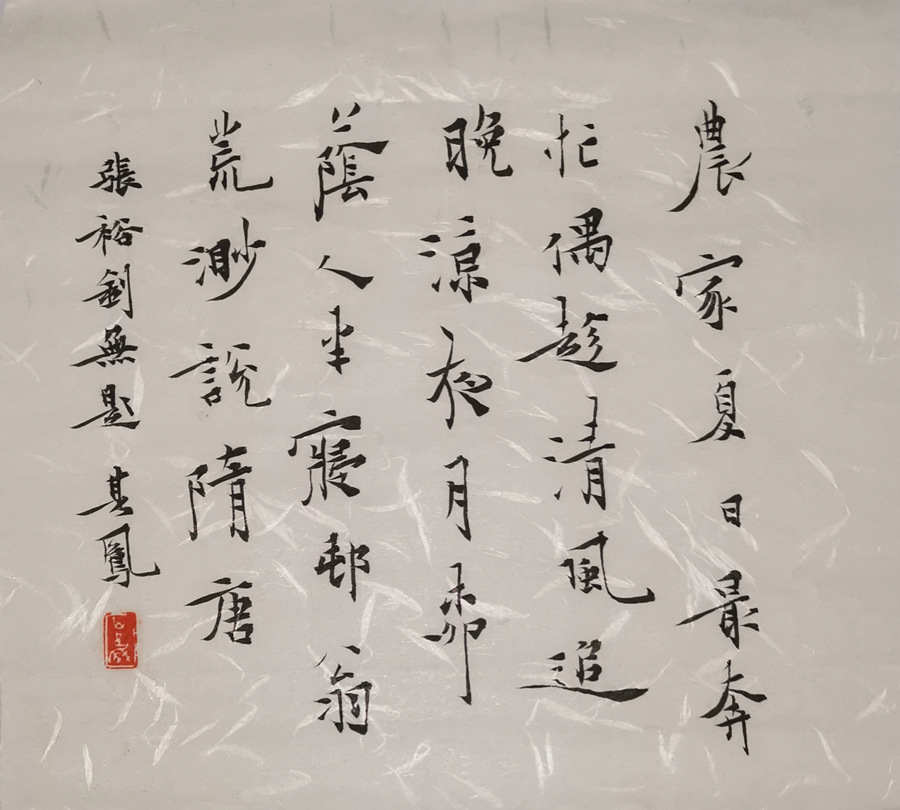 農家夏日最奔
忙偶趁清風追
晚涼夜月柳
蔭人半寢邨翁
荒渺說隋唐
張裕釗無題 其鳳